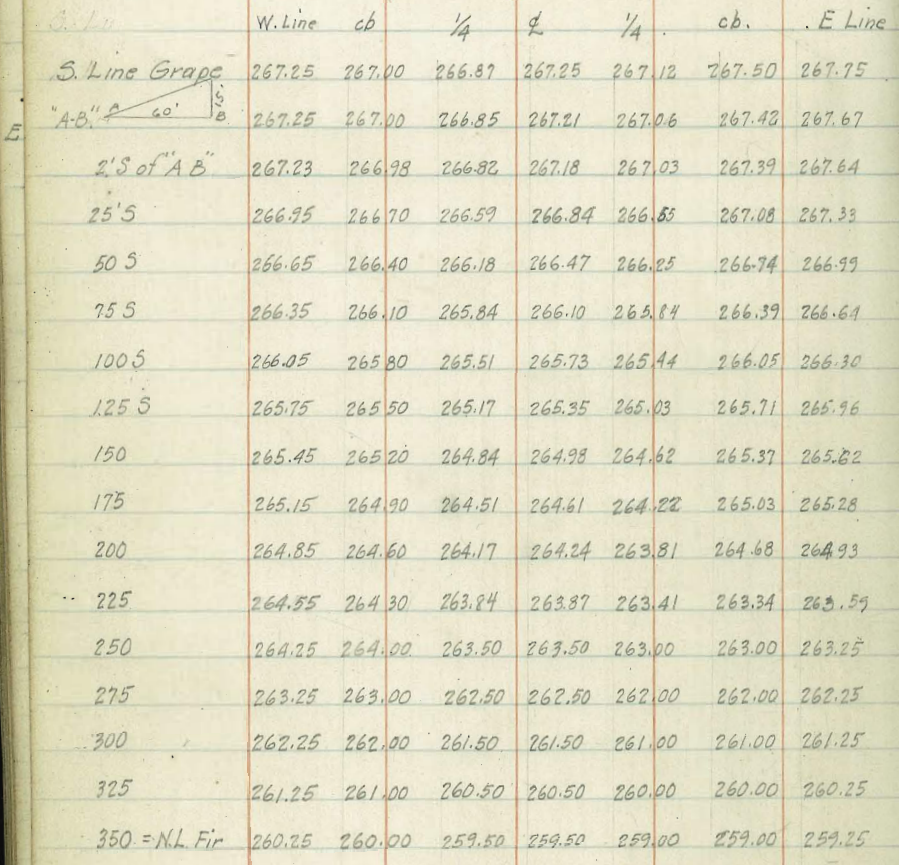 W. Line cb 1/4 ℄ 1/4 . cb. . E Line
S. Line Grape 267.25 267.00 266.87 267.25 267.12 267.50 267.75
E "A-B." A 60' B 267.25 267.00 266.85 267.21 267.06 267.42 267.67
2'S of "A B" 267.23 266.98 266.82 267.18 267.03 267.39 267.64
25'S 266.95 266.70 266.59 266.84 266.55 267.08 267.33
50 S 266.65 266.40 266.18 266.47 266.25 266.74 266.99
75 S 266.35 266.10 265.84 266.10 265.84 266.39 266.64
100 S 266.05 265.80 265.51 265.73 265.44 266.05 266.30
125 S 265.75 265.50 265.17 265.35 265.03 265.71 265.96
150 265.45 265.20 264.84 264.98 264.62 265.37 265.62
175 265.15 264.90 264.51 264.61 264.22 265.03 265.28
200 264.85 264.60 264.17 264.24 263.81 264.68 264.93
225 264.55 264.30 263.84 263.87 263.41 263.34 263.59
250 264.25 264.00 263.50 263.50 263.00 263.00 263.25
275 263.25 263.00 262.50 262.50 262.00 262.00 262.25
300 262.25 262.00 261.50 261.50 261.00 261.00 261.25
325 261.25 261.00 260.50 260.50 260.00 260.00 260.25
350 = N.L. Fir 260.25 260.00 259.50 259.50 259.00 259.00 259.25